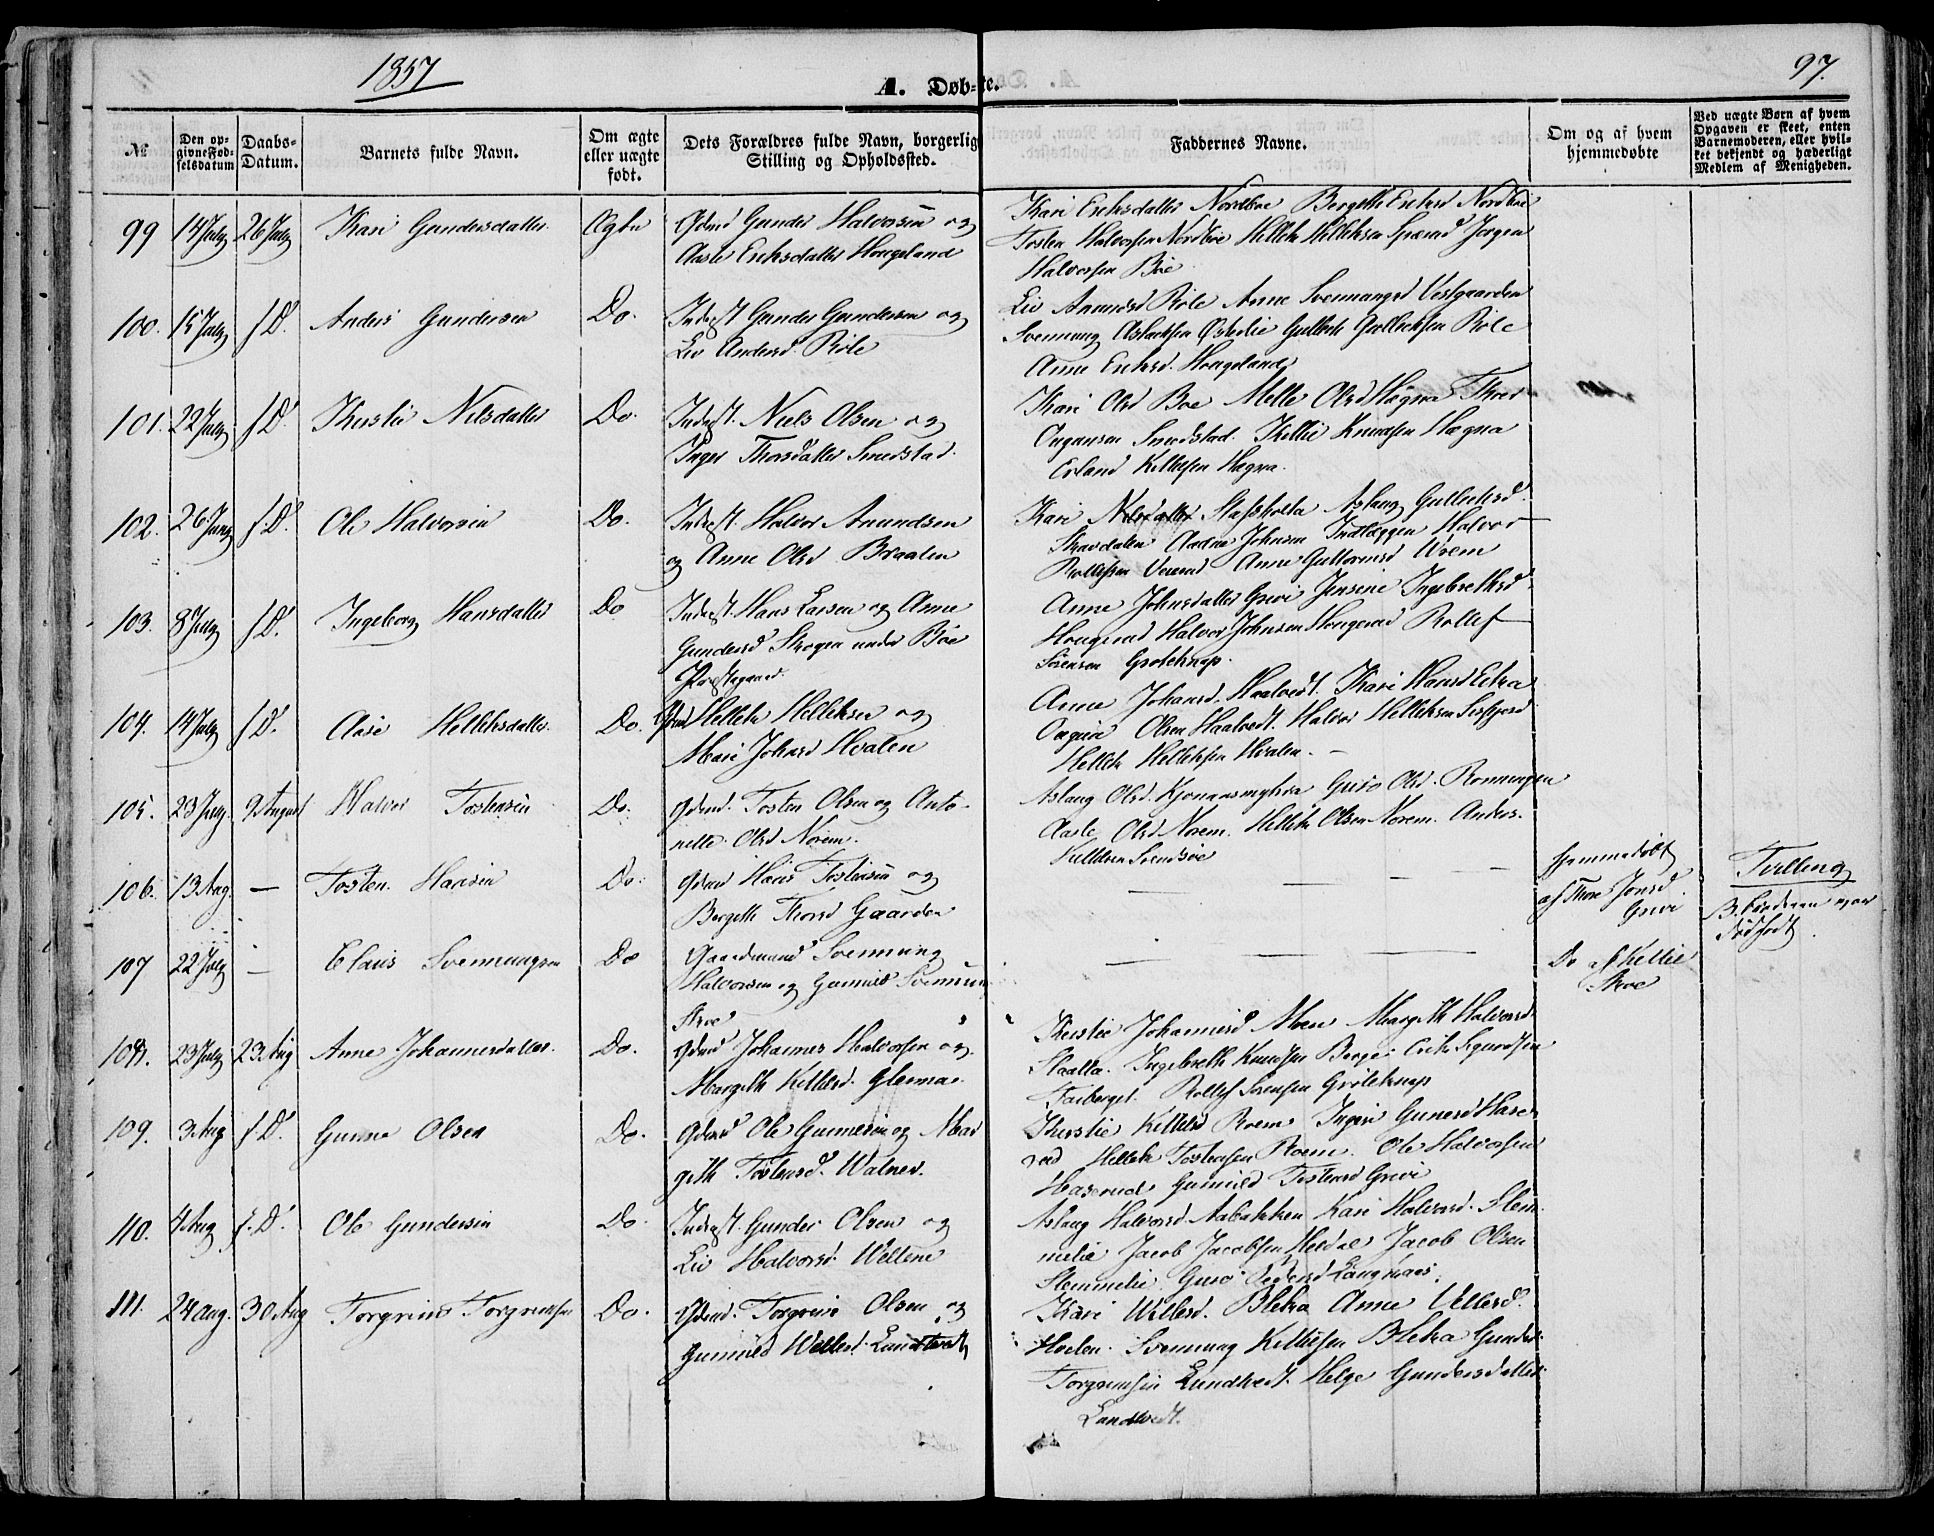 1857
97.
A. Døb-te.
№
Den opgivne Fødselsdatum
Daabs-Datum.
Barnets fulde Navn.
Om ægte eller uægte født.
Dets Forældres fulde Navn, borgerlige Stilling og Opholdssted.
Faddernes Navne.
Om og af hvem hjemmedøbte
Ved uægte Børn af hvem Opgaven er skeet, enten Barnemoderen, eller hvilket bekjendt og hæderligt Medlem af Menigheden.
99 14 July 26 July Kari Gundersdatter Ægte Gdmd Gunder Halvorsen og
Aasle Eriksdatter Hougeland
Kari Eriksdatter Nordboe Bergith Eriksd Nordboe
Tosten Halvorsen Nordboe Hellek Helleksen Jørgen
Halvorsen Bøe
100. 15 July f.D. Anders Gundersen Do. Inderst Gunder Gundersen og
Liv Andersd. Røle
Liv Anundsd Røle Anne Svennungsd Vestgaarden
Svennung Aslaksen Østerlie Gullek Gulleksen Røle
Anne Eriksd. Hougeland
101. 22 July f.D. Kirstie Nilsdatter Do. Inderst. Niels Olsen og
Inger Thorsdatter Smedstad.
Kari Olsd Boe Melle Olsd Hægna Thor
Smedstad. Kittil Knudsen Hægna
Erland Kittilsen Hægna.
102. 26 July f.D. Ole Halvorsen Do. Inderst. Halvor Anundsen
og Anne Olsd Braaten
Kari Nilsdatter Stafsholta Aslaug Gulleksd.
Aadne Johnsen Indlæggen Halvor
Rollefsen Anne Guttormsd
103. 8 July f.D. Ingeborg Hansdatter Do Inderst. Hans Larsen og Anne
Gundersd Skogen under Bøe
Præstegaard.
Anne Johnsdatter Grivi Jensine Ingebrethsd.
Hougerud Halvor Johnsen Hougerud Rollef
Sørensen Grøteknap.
104. 14 July f.D. Aase Helleksdatter. Do. Gdmd Hellek Helleksen og
Mari Johnsd Hvalen
Anne Johansd. Haatvedt. Kari Hansd Eika
Olsen Haatvedt. Halvor Helleksen
Hellek Helleksen Hvalen. —
105. 23 July. 9 August Halvor Tostensen Do. Gdmd. Tosten Olsen og Anto-
nette Olsd Norem.
Aslaug Olsd. Guro Olsd. Rønningen
Aasle Olsd Norem. Hellek Olsen Norem. Anders.
Svendsøe
106. 13 Aug. — Tosten Hansen Do. Gdmd Hans Tostensen og
Bergith Thorsd Gaarden
— — — —
hjemmedøbt
af Thone Jonsd.
Grivi
Tvilling
Broderen var
dødfødt.
107 22 July — Claus Svennungsen Do Gaardmand Svennung
Halvorsen og Gunnild Svennungsd
Skoe
— — — —
Do af Kittil
Skoe
108. 23 July 23 Aug Anne Johannesdatter. Do. Gdmd Johannes Halvorsen og
Margith Kittilsd.
Kirstie Johannesd Moen Margith Halvorsd.
Ingebreth Knudsen Berge Erik Sigurdsen
Rollef Sørensen Grøteknap
109. 3 Aug f.D. Gunne Olsen Do. Gdmd Ole Gunnesen og Mar
gith Tostensd. Walnes.
Kirstie Kittilsd Roem Ingeri Gunesd Hase
rud Hellek Tostensen Roem. Ole Halvorsen
Haserud Gunnild Tostensd Grivi
110. 4 Aug f.D. Ole Gundersen Do. Inderst. Gunder Olsen og
Liv Halvorsd Wettene
Aslaug Halvorsd. Aabakken Kari Halvorsd. Stem-
melie Jacob Jacobsen Jacob Olsen
Stemmelie. Guro Langnæs.
111. 24 aug. 30 Aug Torgrim Torgrimsen Do. Gdmd. Torgrim Olsen og
Gunnild Wettesd. Lundtvedt
Kari Wetlesd. Bleka Anne Vetlesd.
Svennung Kittilsen Bleka Gunder
Torgrimsen Lundtvedt. Helge Gundersdatter
Lundtvedt.